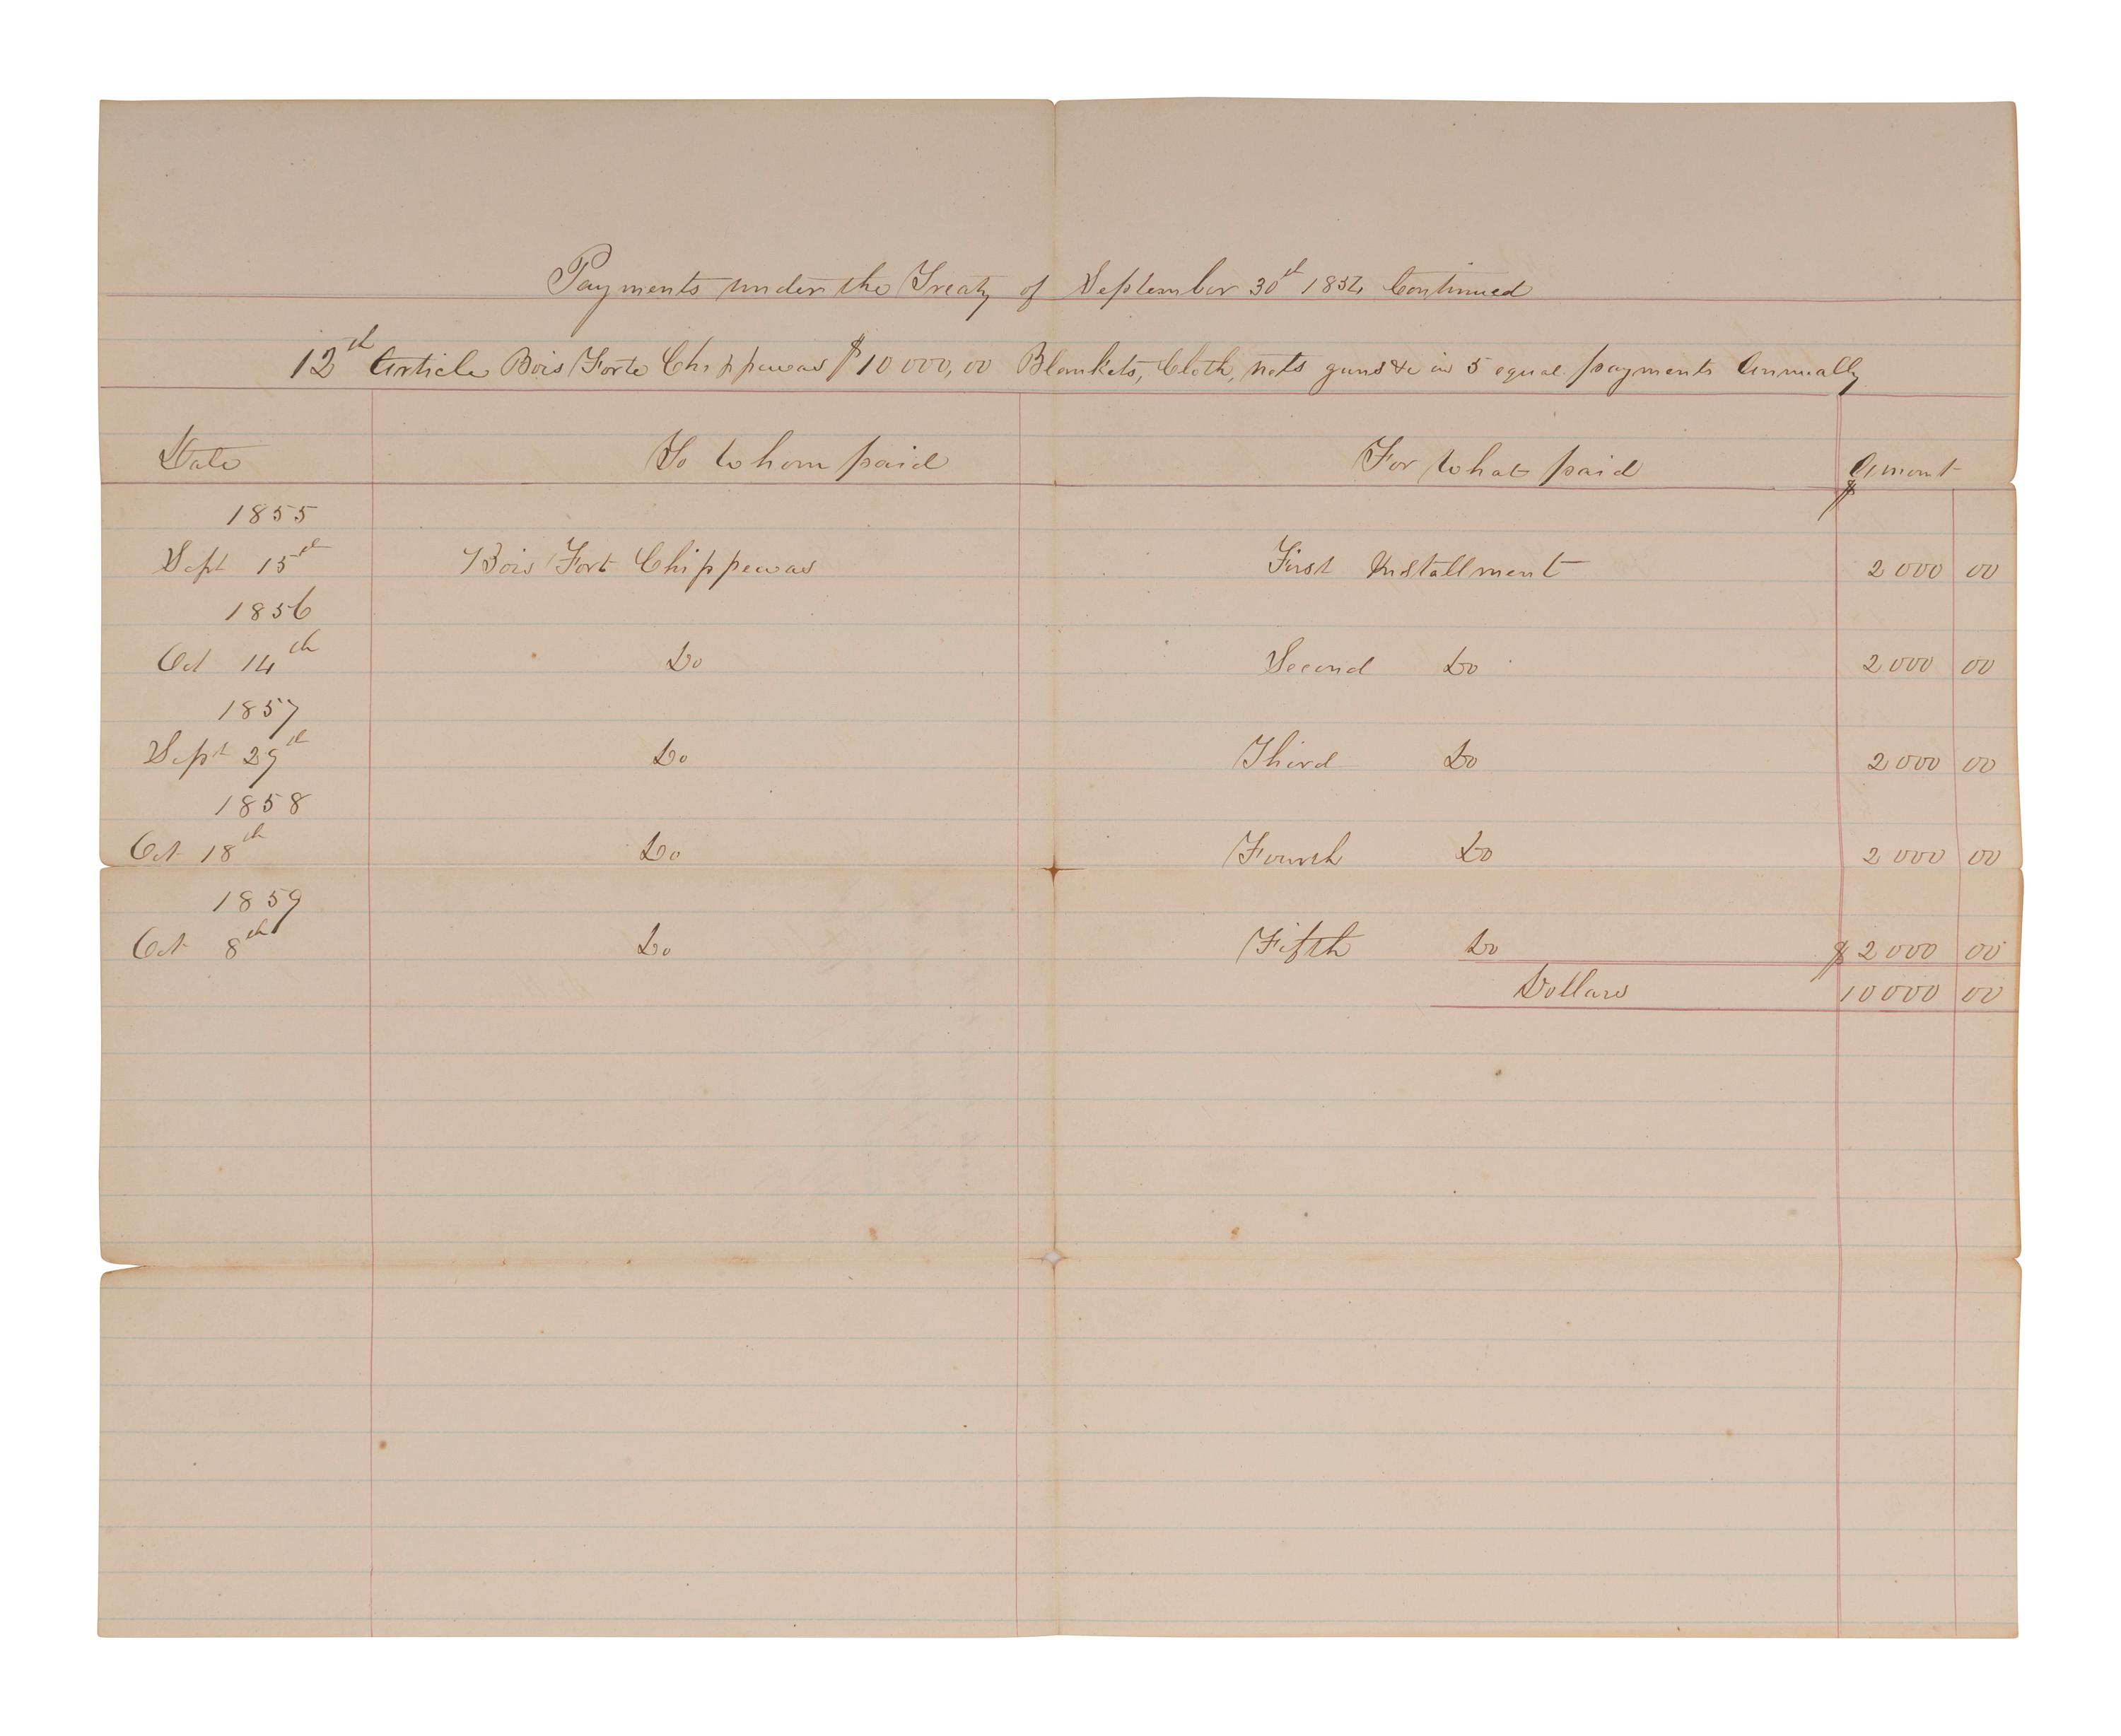 Payments under the Treaty of September 30th 1854 Continued
12th Article Bois Forte Chippewas $10000,00 Blankets, Cloth, nets guns &c in 5 equal payments Annually
Date To whom paid For what paid Amont
$
1855
Sept 15th Bois Fort Chippewas First Installment 2000 00
1856
Oct 14th Do Second Do 2000 00
1857
Sept 29th Do Third Do 2000 00
1858
Oct 18th Do Fourth Do 2000 00
1859
Oct 8th Do Fifth Do $2000 00
Dollars 10000 00